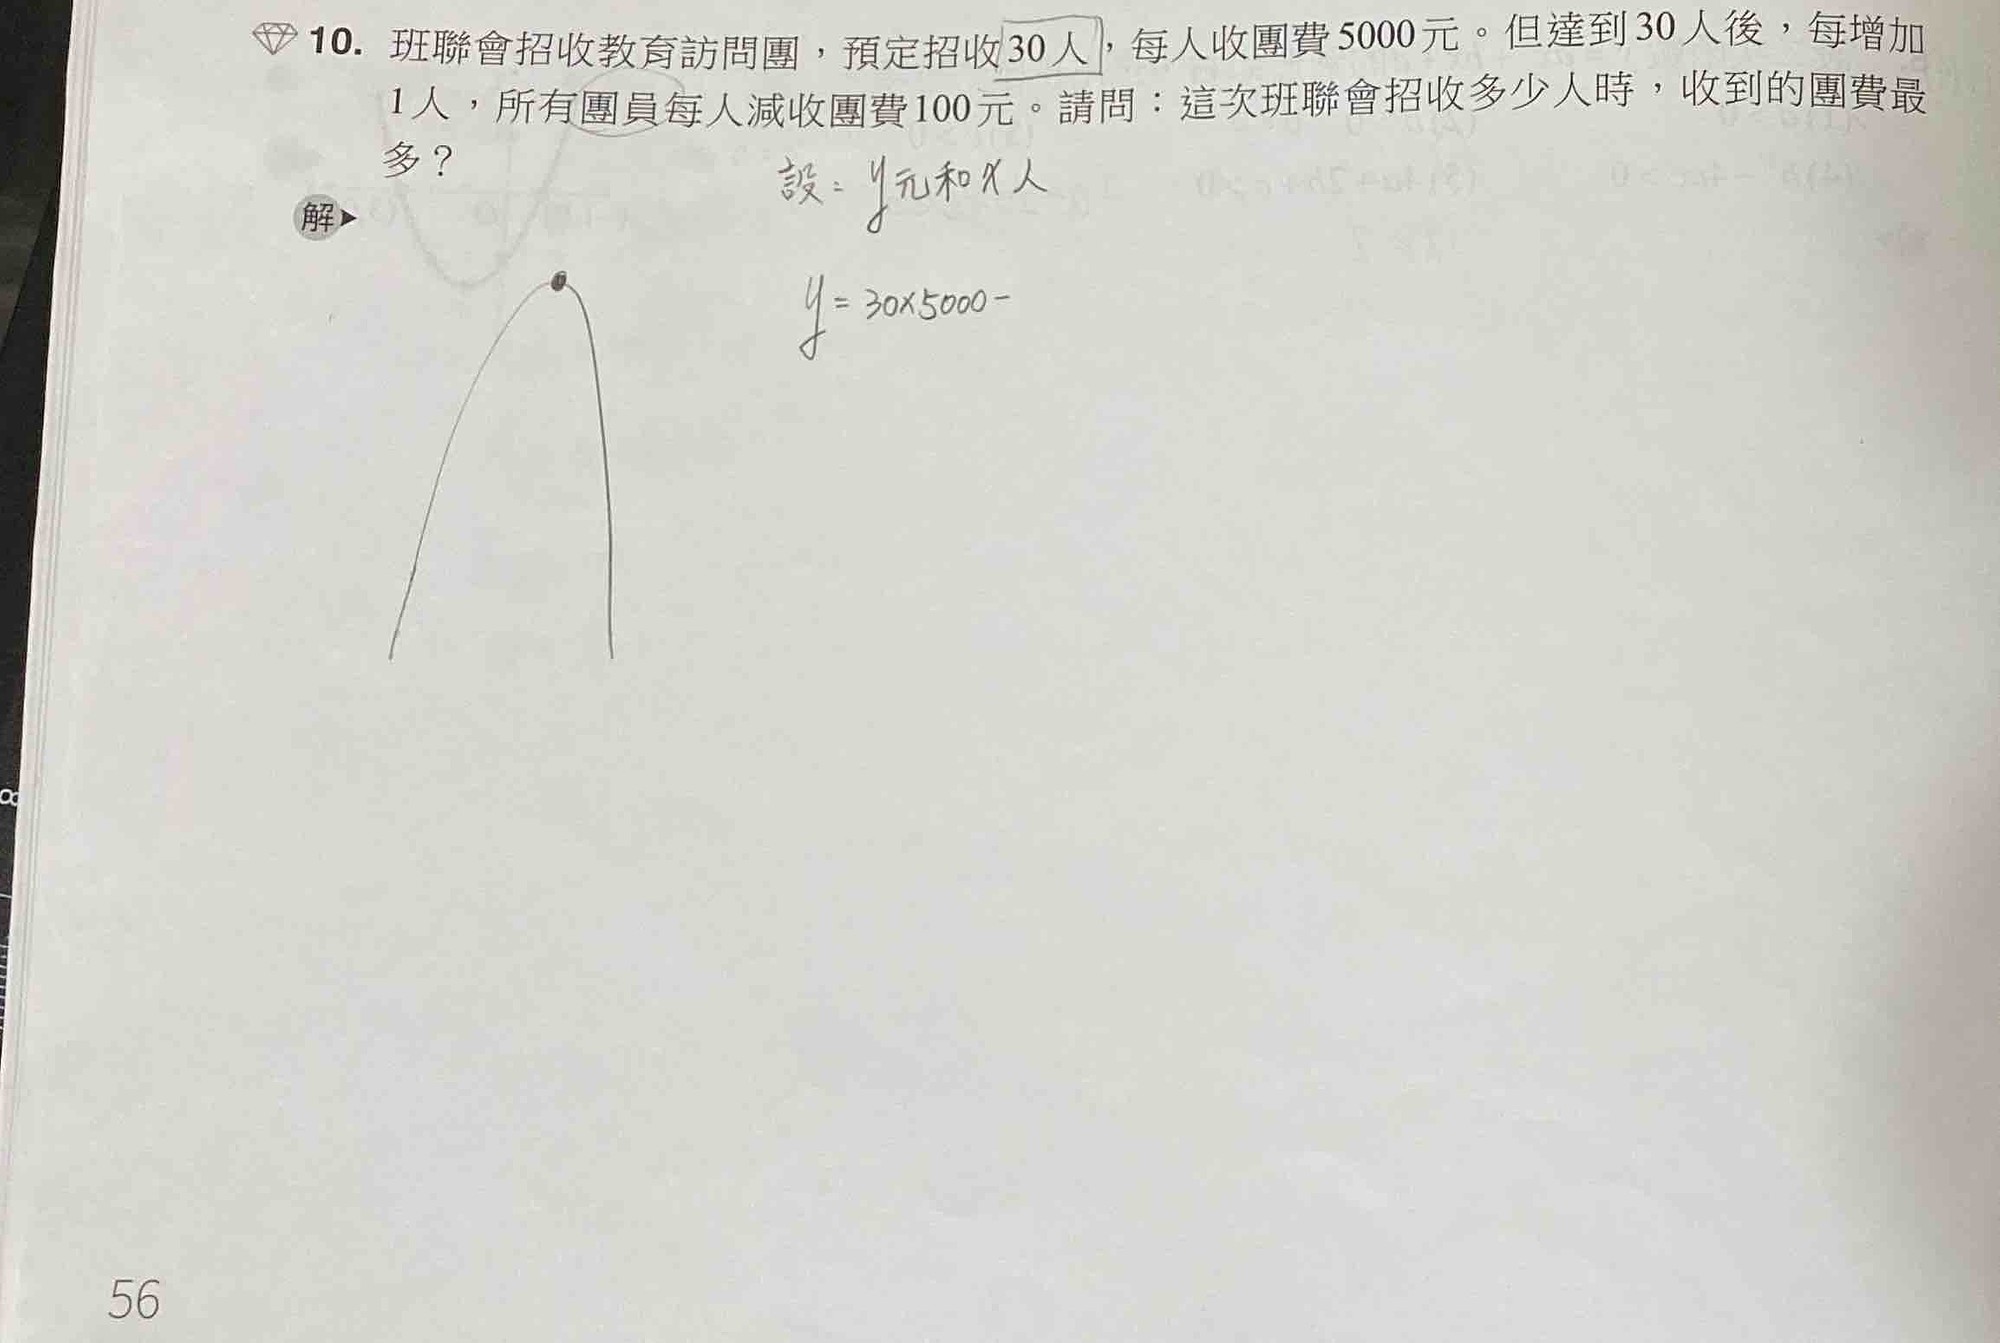 10. 班聯會招收教育訪問團，預定招收30人，每人收團費5000元。但達到30人後，每增加
1人，所有團員每人減收團費100元。請問：這次班聯會招收多少人時，收到的團費最
多？
設：y元和x人
解
y=30×5000-
56